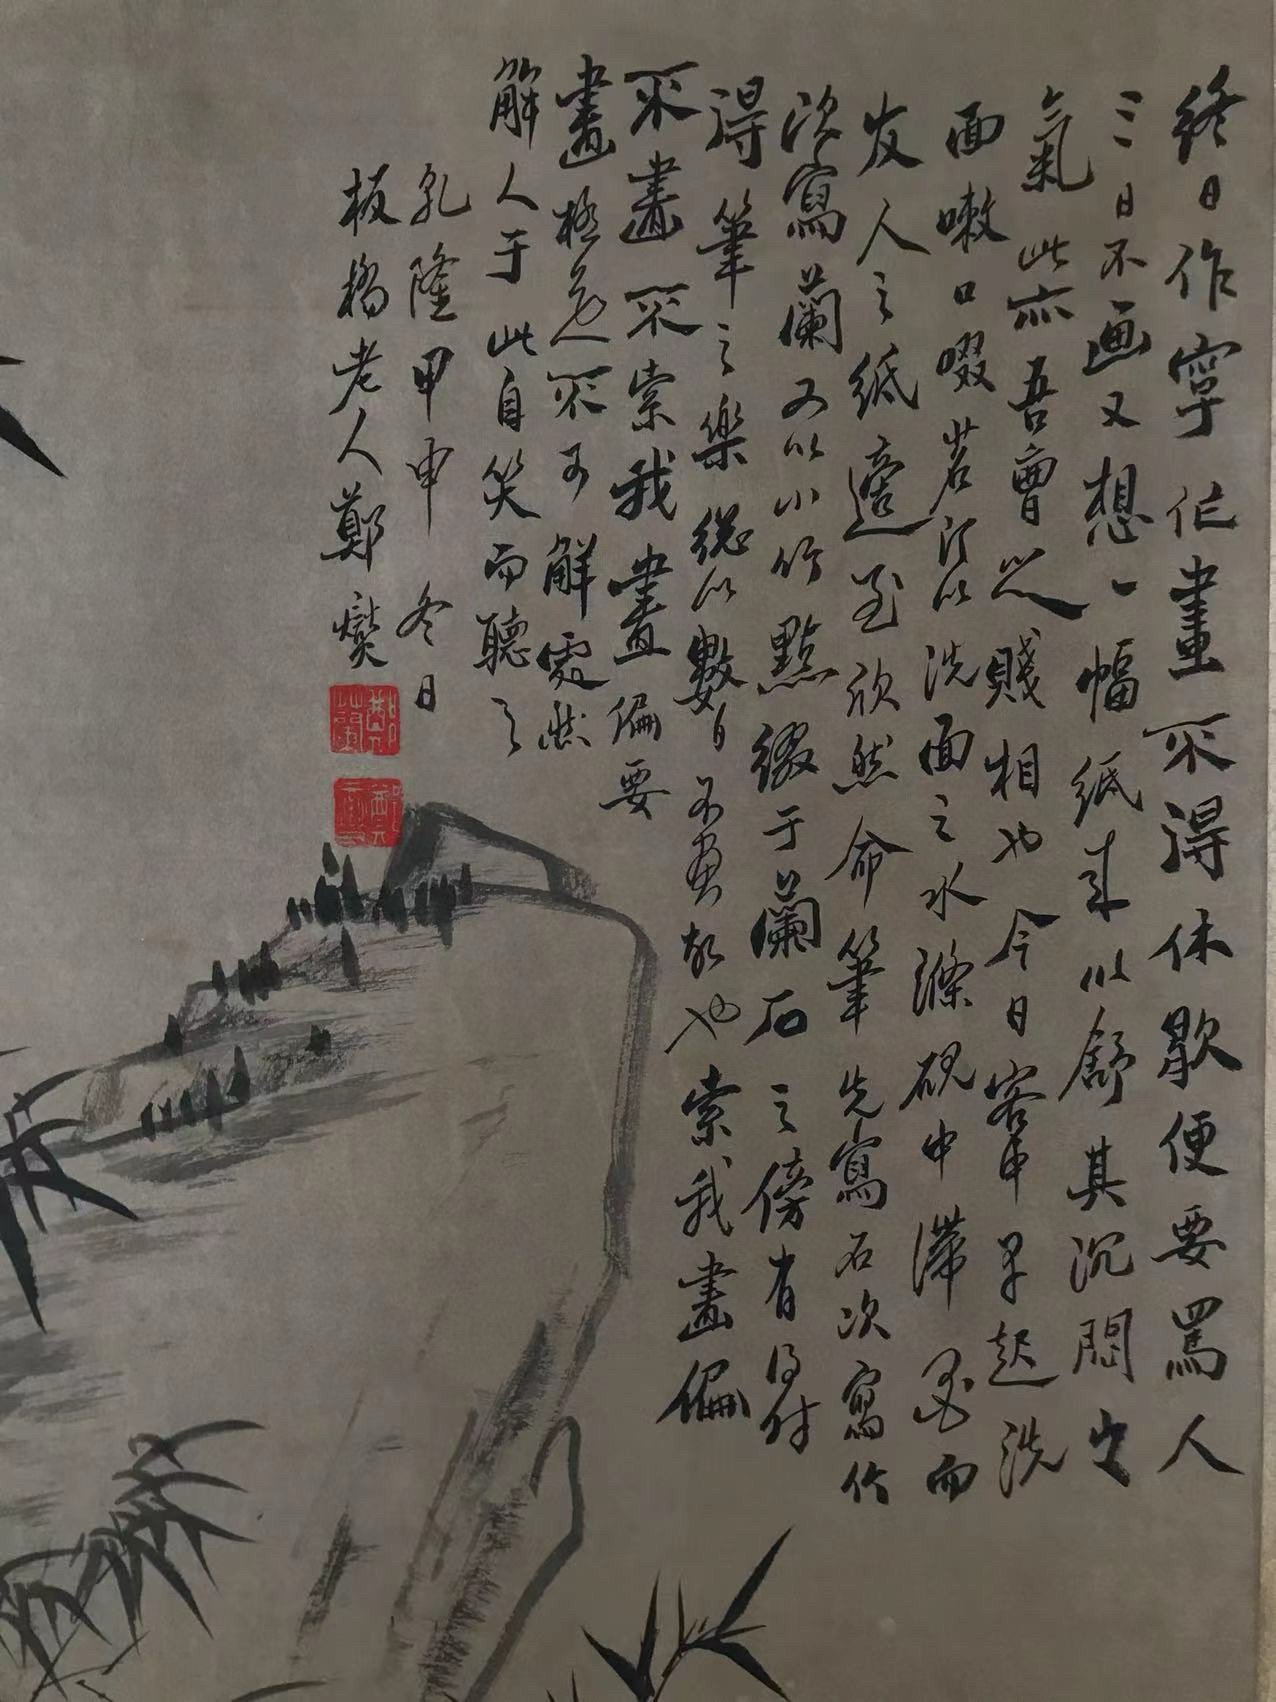 終日作字作畫不得休歇便要罵人
三日不画又想一幅紙來以舒其沉悶之
氣此亦吾曹之賤相也今日客中早起洗
面嗽口啜茗即以洗面之水滌硯中滯墨而
友人之紙適至欣然命筆先寫石次寫竹
次寫蘭又以小竹點綴于蘭石之傍有得時
得筆之樂總以數日不畫故也索我畫偏
不畫不索我畫偏要
畫極是不可解處然
解人于此自笑而聽之
乾隆甲申冬日
板橋老人鄭燮